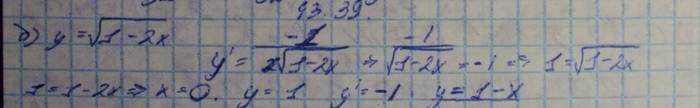 93.39.
б) y = √(1-2x)
y' = -2/(2√(1-2x)) ⇒ -1/√(1-2x) = -1 ⇒ 1 = √(1-2x)
1 = 1-2x ⇒ x = 0. y = 1 y' = -1. y = 1-x